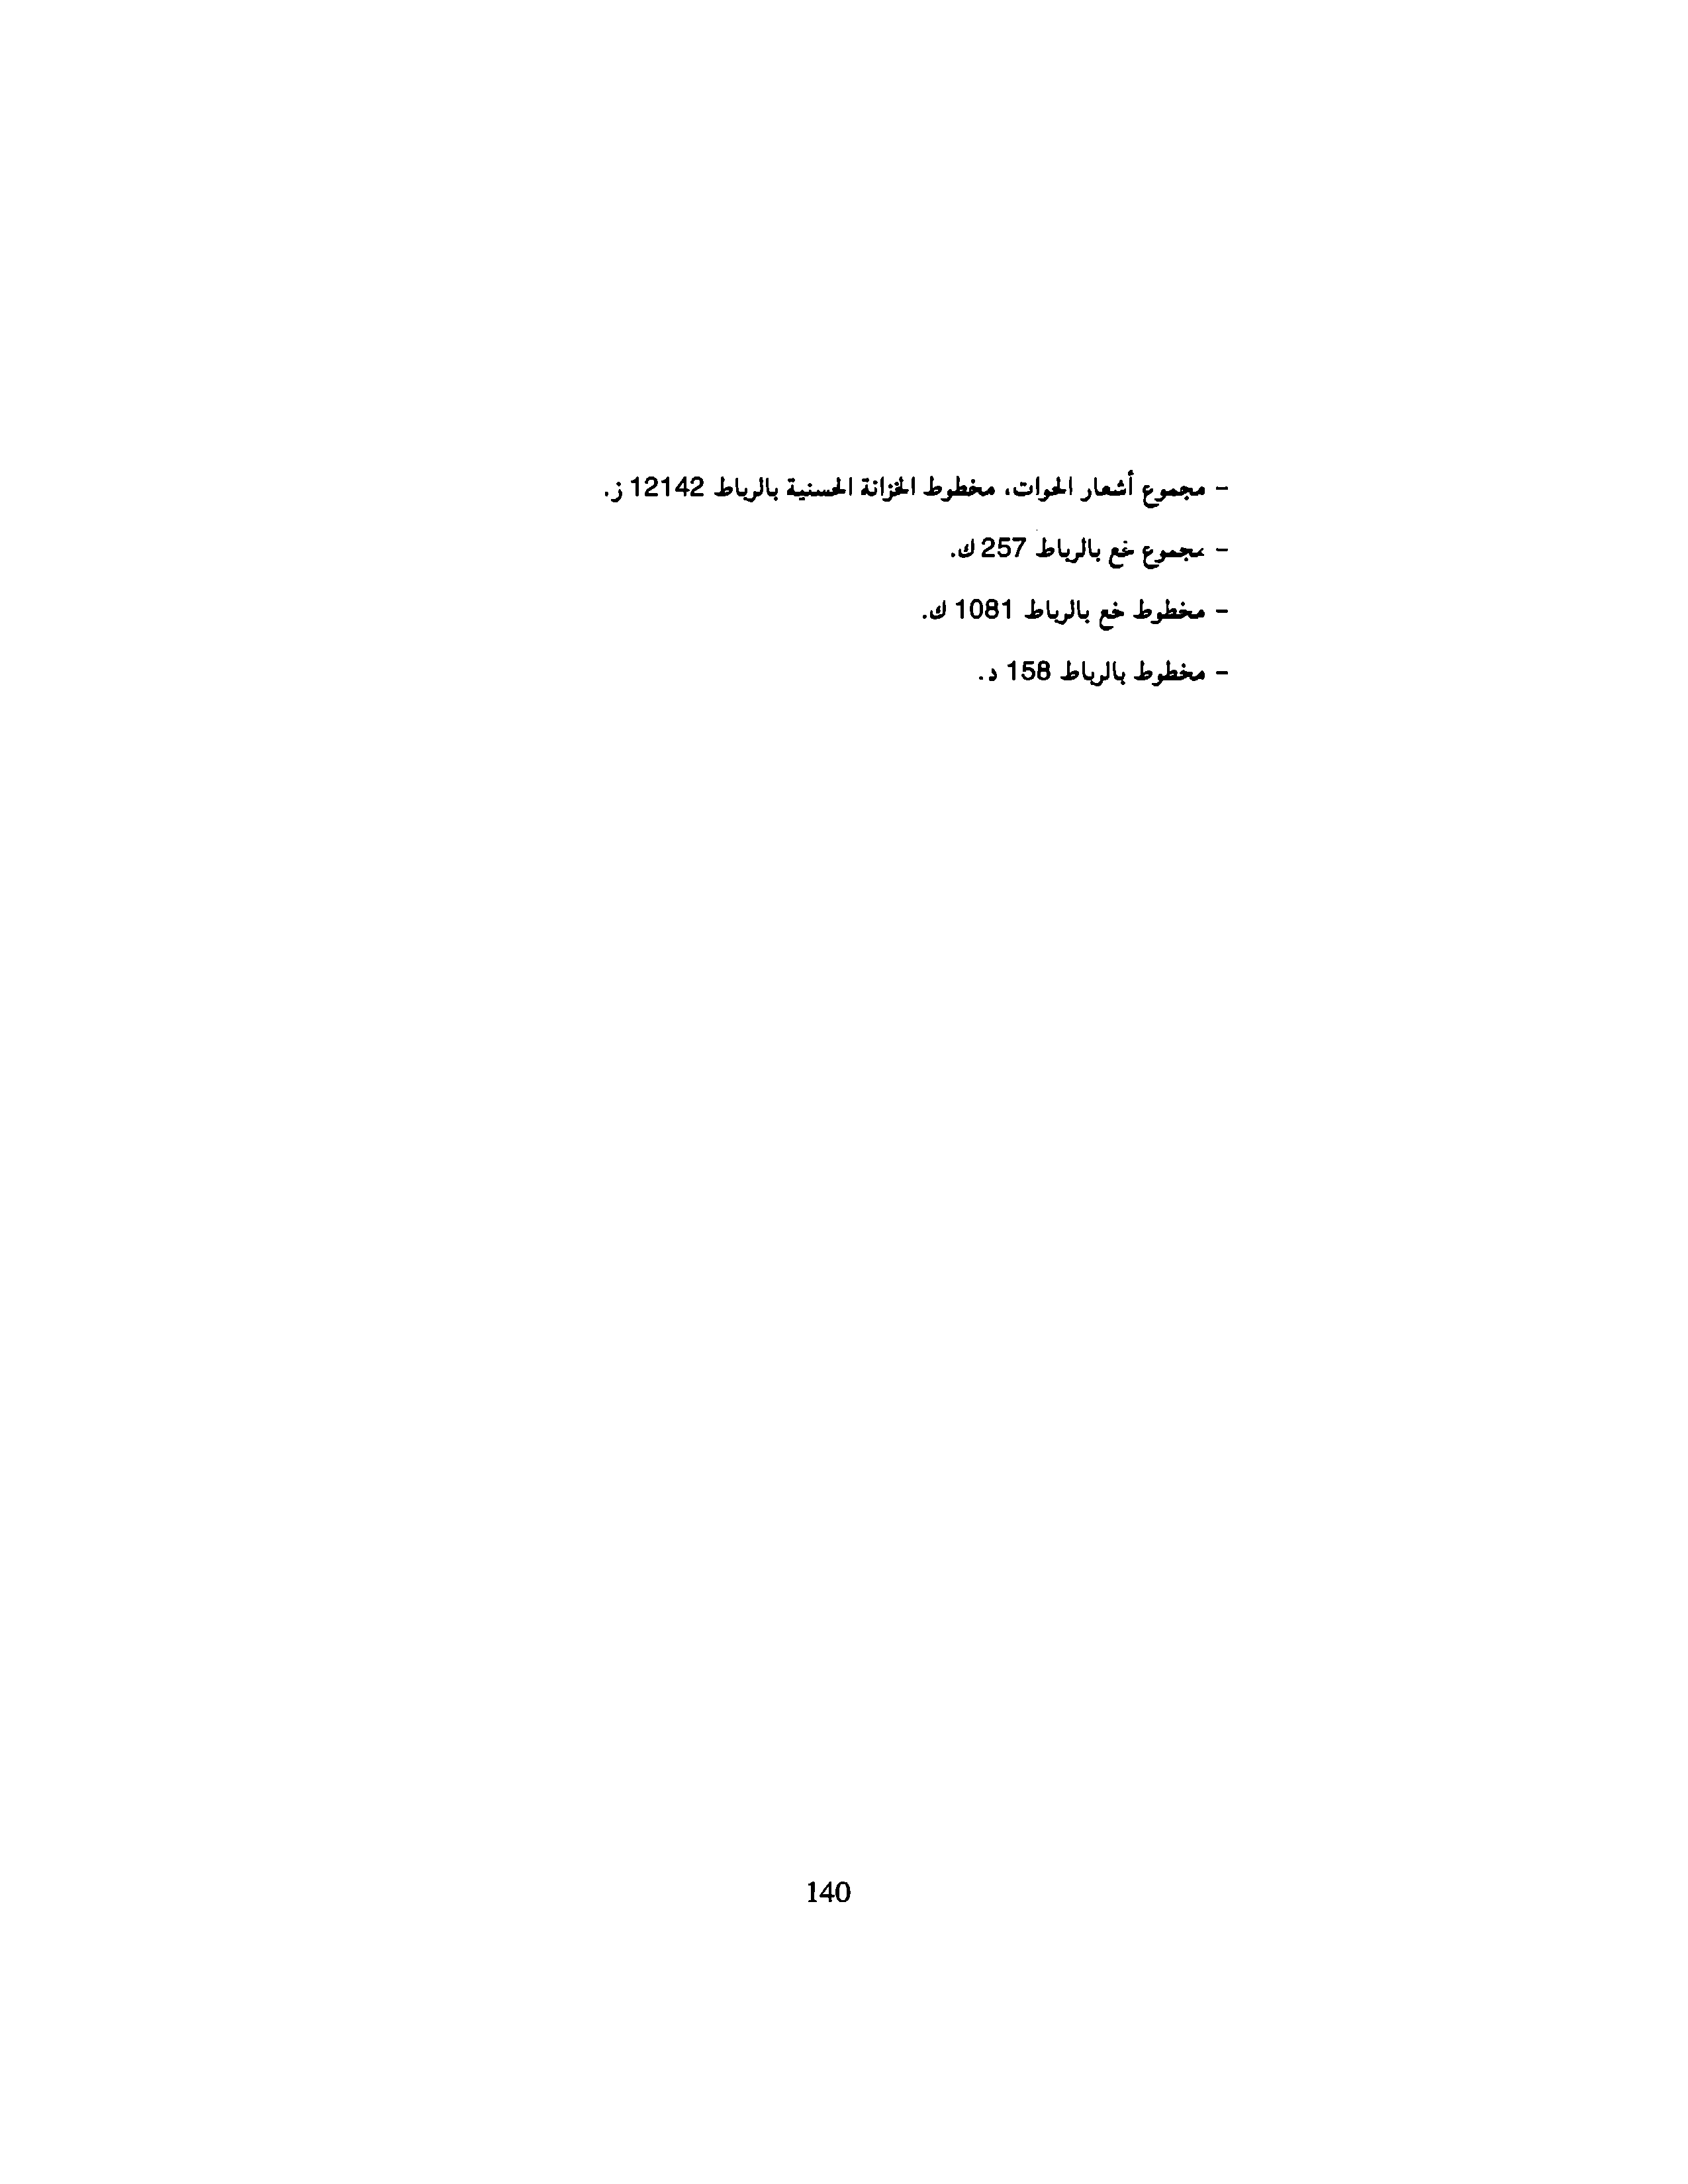 - مجموع أشعار الحوات، مخطوط الخزانة الحسنية بالرباط 12142 ز.
- مجموع خع بالرباط 257 ك.
- مخطوط خع بالرباط 1081 ك.
- مخطوط بالرباط 158 د.
140